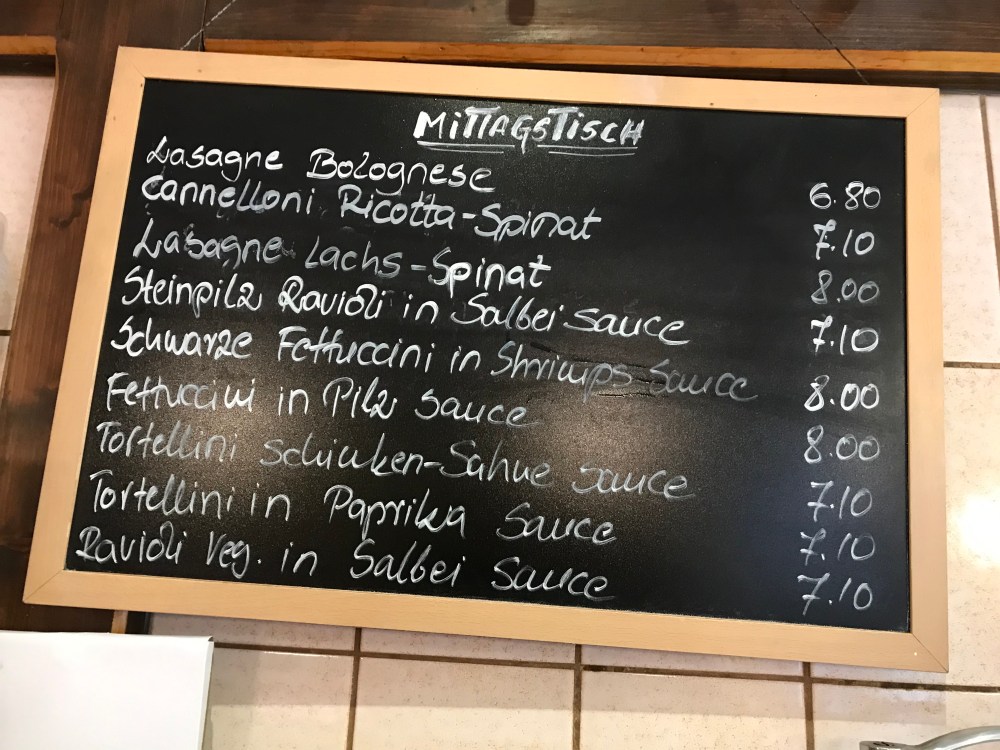 MITTAGSTISCH
Lasagne Bolognese 6.80
Cannelloni Ricotta-Spinat 7.10
Lasagne Lachs-Spinat 8.00
Steinpilz Ravioli in Salbei sauce 7.10
Schwarze Fettuccini in Shrimps Sauce 8.00
Fettuccini in Pilz sauce 8.00
Tortellini Schinken-Sahne sauce 7.10
Tortellini in Paprika Sauce 7.10
Ravioli Veg. in Salbei Sauce 7.10